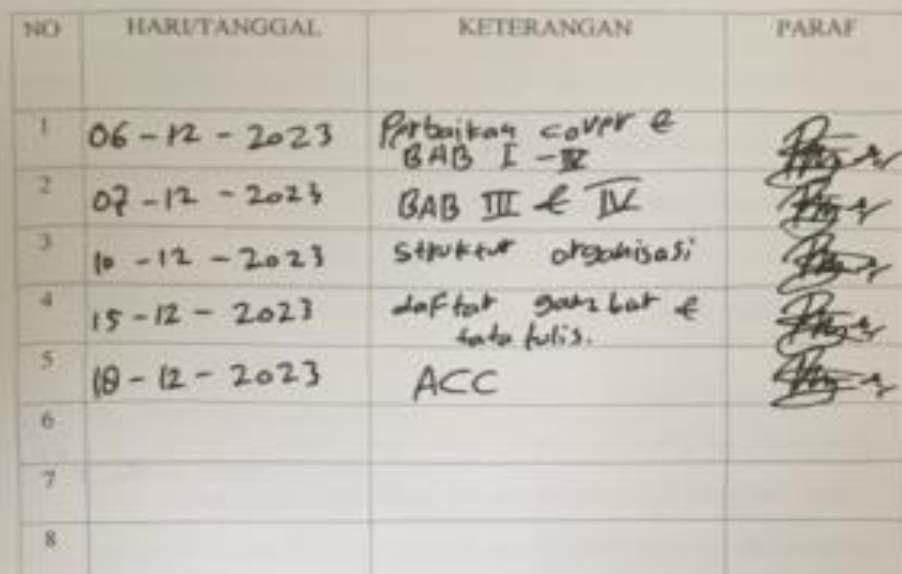 NO HARI/TANGGAL KETERANGAN PARAF
1 06-12-2023 Perbaikan cover &
BAB I - IV
2 07-12-2023 BAB III & IV
3 10-12-2023 struktur organisasi
4 15-12-2023 daftar gambar &
tata tulis.
5 18-12-2023 ACC
6
7
8